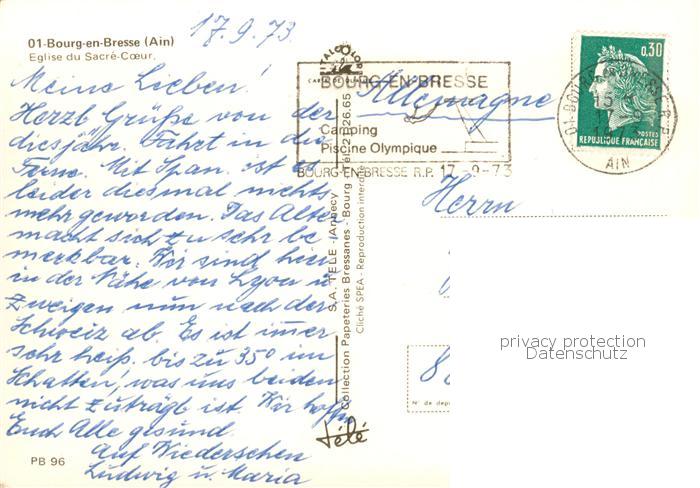 17.9.73
01-Bourg-en-Bresse (Ain)
Eglise du Sacré-Cœur.
Meine Lieben!
Herzl Grüße von der
diesjähr. Fahrt in die
Ferne. Mit Span. ist es
leider diesmal nichts
mehr geworden. Das Alter
macht sich zu sehr be
merkbar. Wir sind hier
in der Nähe von Lyon u
zweigen nun nach der
Schweiz ab. Es ist imer
sehr heiß. bis zu 35° im
Schatten, was uns beiden
nicht zuträgl ist. Wir hoffn
Euch Alle gesund.
Auf Wiedersehen
Ludwig u. Maria
PB 96
ITALCOLOR
BOURG-EN-BRESSE
Camping
Piscine Olympique
BOURG-EN-BRESSE R.P. 17-9-73
Allemagne
Herrn
0,30
POSTES
REPUBLIQUE FRANÇAISE
AIN
S.A. TELE - (Annecy)
Collection Papeteries Bressanes - Bourg
Cliché SPEA - Reproduction interdite
Télé
8
N° de dép
privacy protection
Datenschutz